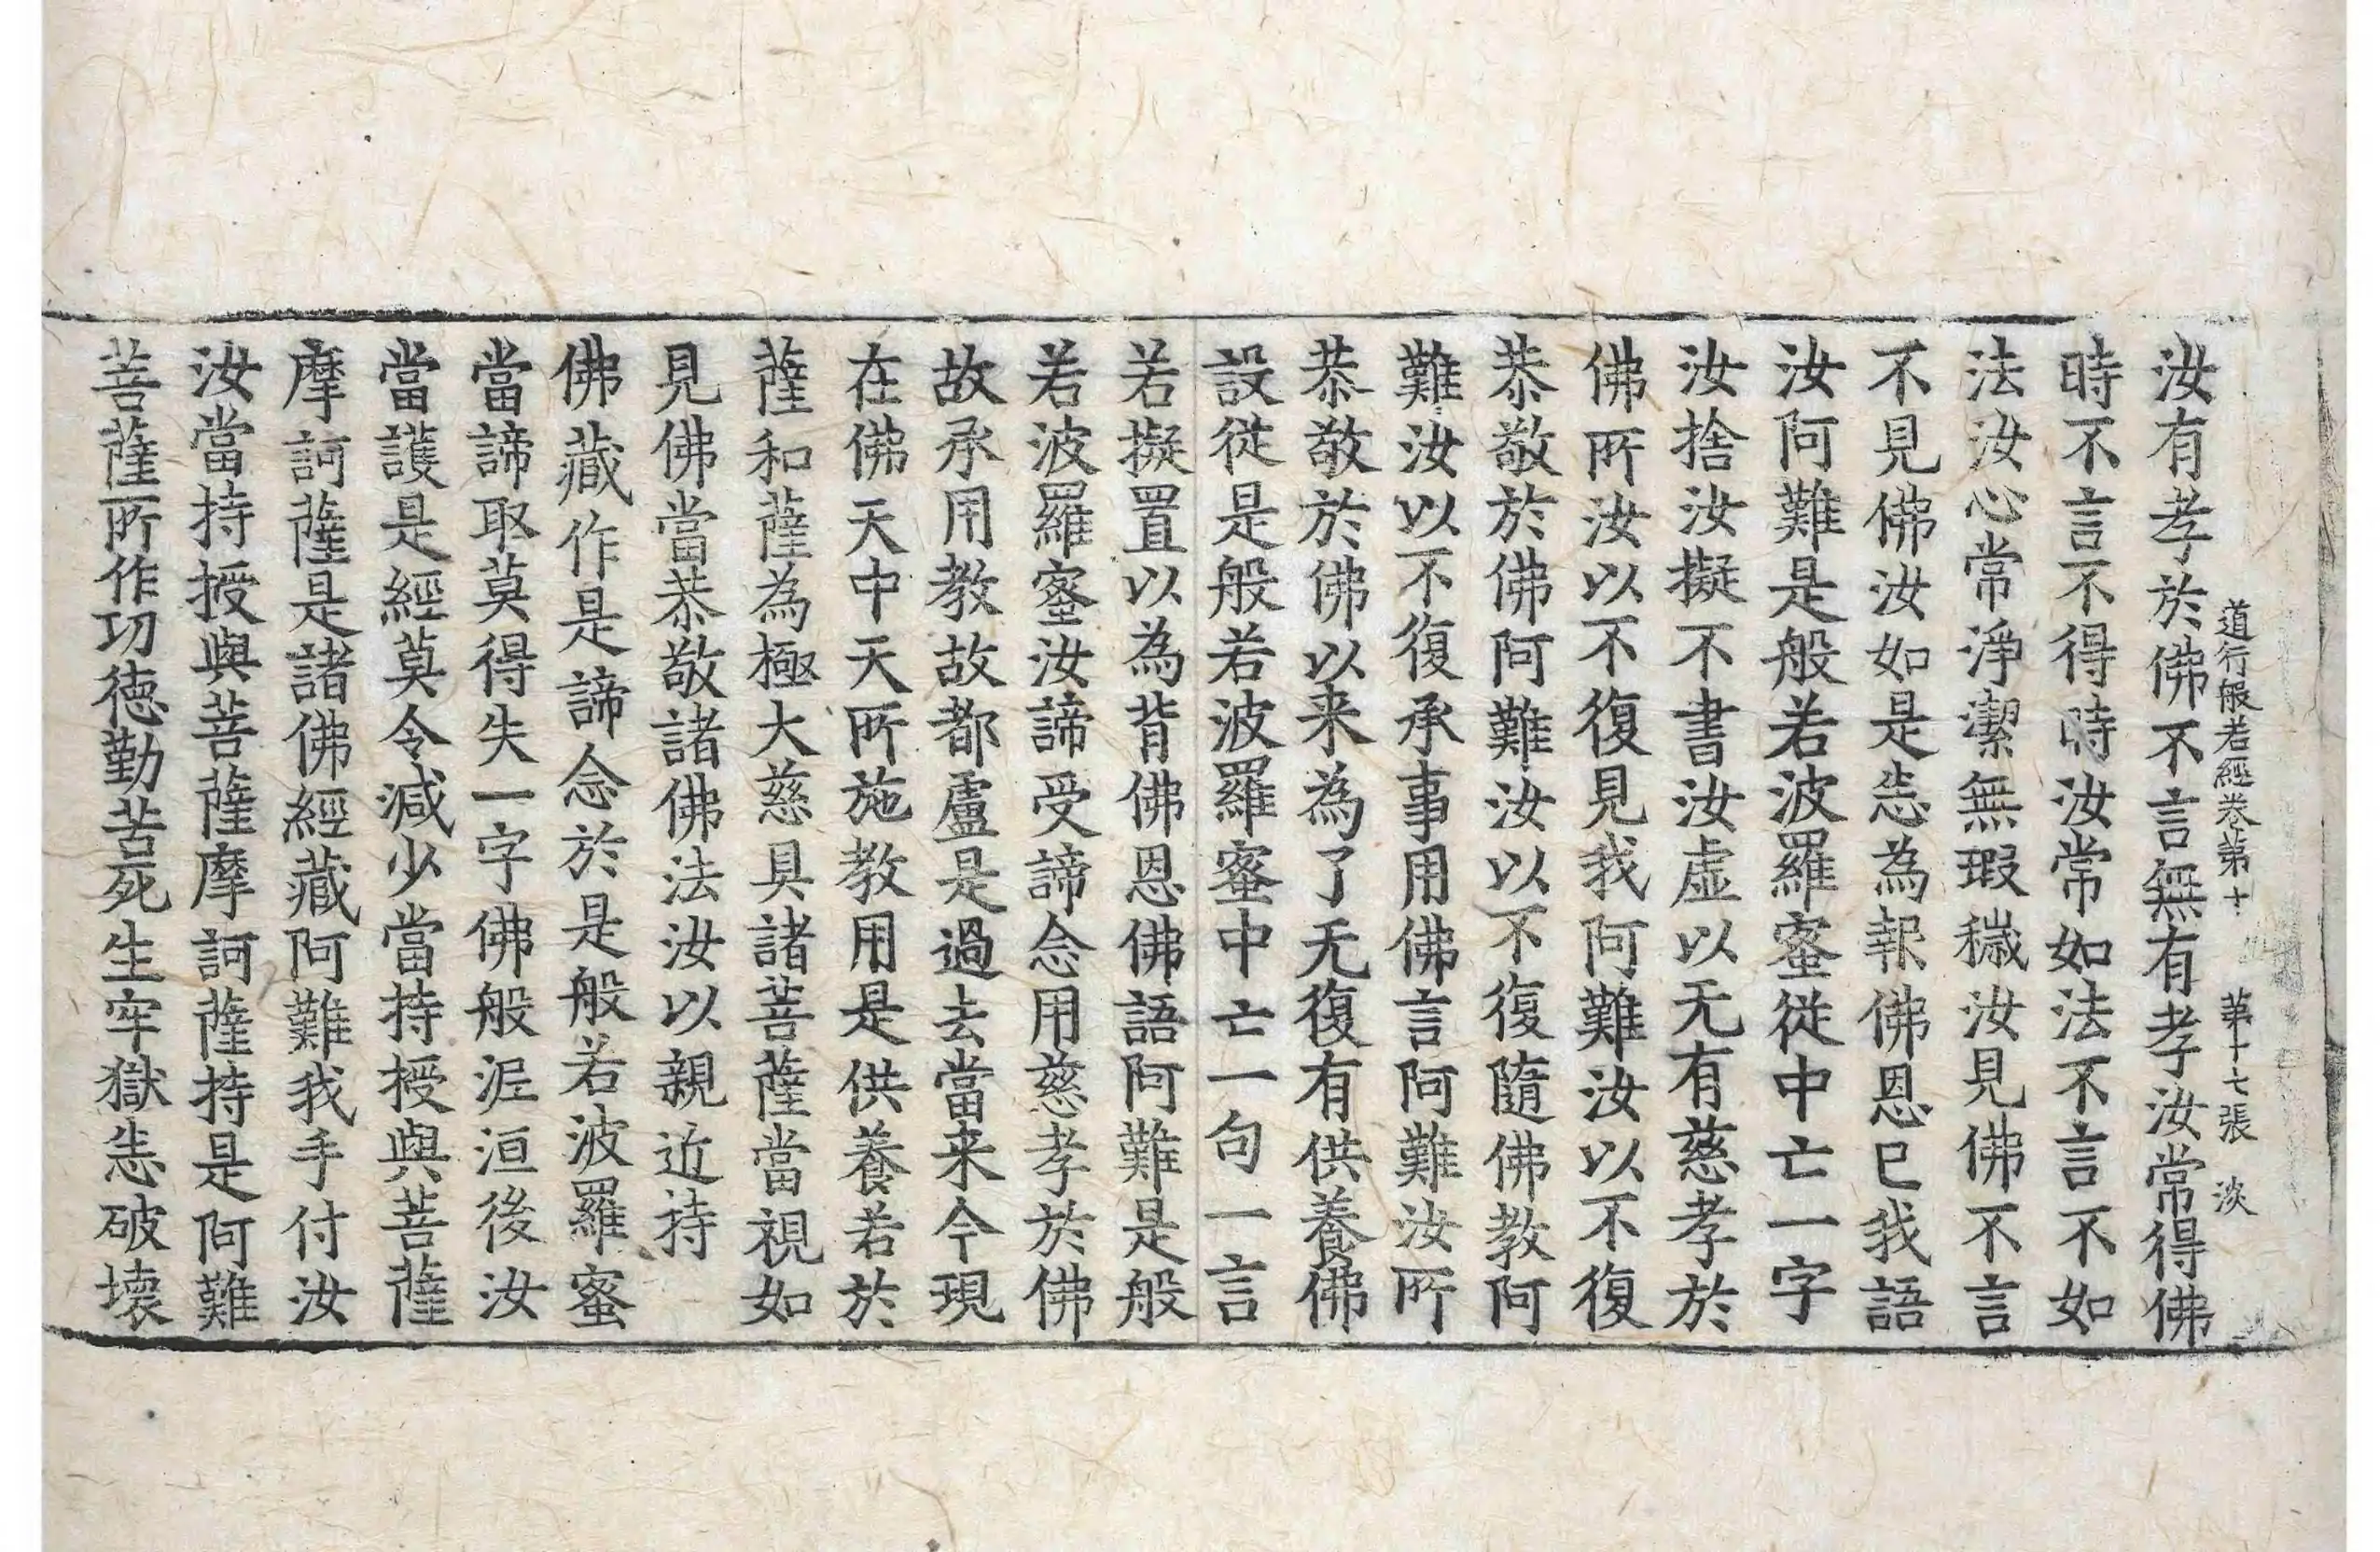 道行般若經卷第十　第十七張　淡
汝有孝於佛不言無有孝汝常得佛
時不言不得時汝常如法不言不如
法汝心常淨潔無瑕穢汝見佛不言
不見佛汝如是悉為報佛恩已我語
汝阿難是般若波羅蜜從中亡一字
汝捨汝擬不書汝虛以无有慈孝於
佛所汝以不復見我阿難汝以不復
恭敬於佛阿難汝以不復隨佛教阿
難汝以不復承事用佛言阿難汝所
恭敬於佛以来為了无復有供養佛
設從是般若波羅蜜中亡一句一言
若擬置以為背佛恩佛語阿難是般
若波羅蜜汝諦受諦念用慈孝於佛
故承用教故都盧是過去當来今現
在佛天中天所施教用是供養若於
薩和薩為極大慈具諸菩薩當視如
見佛當恭敬諸佛法汝以親近持
佛藏作是諦念於是般若波羅蜜
當諦取莫得失一字佛般泥洹後汝
當護是經莫令減少當持授與菩薩
摩訶薩是諸佛經藏阿難我手付汝
汝當持授與菩薩摩訶薩持是阿難
菩薩所作功德勤苦死生牢獄悉破壞